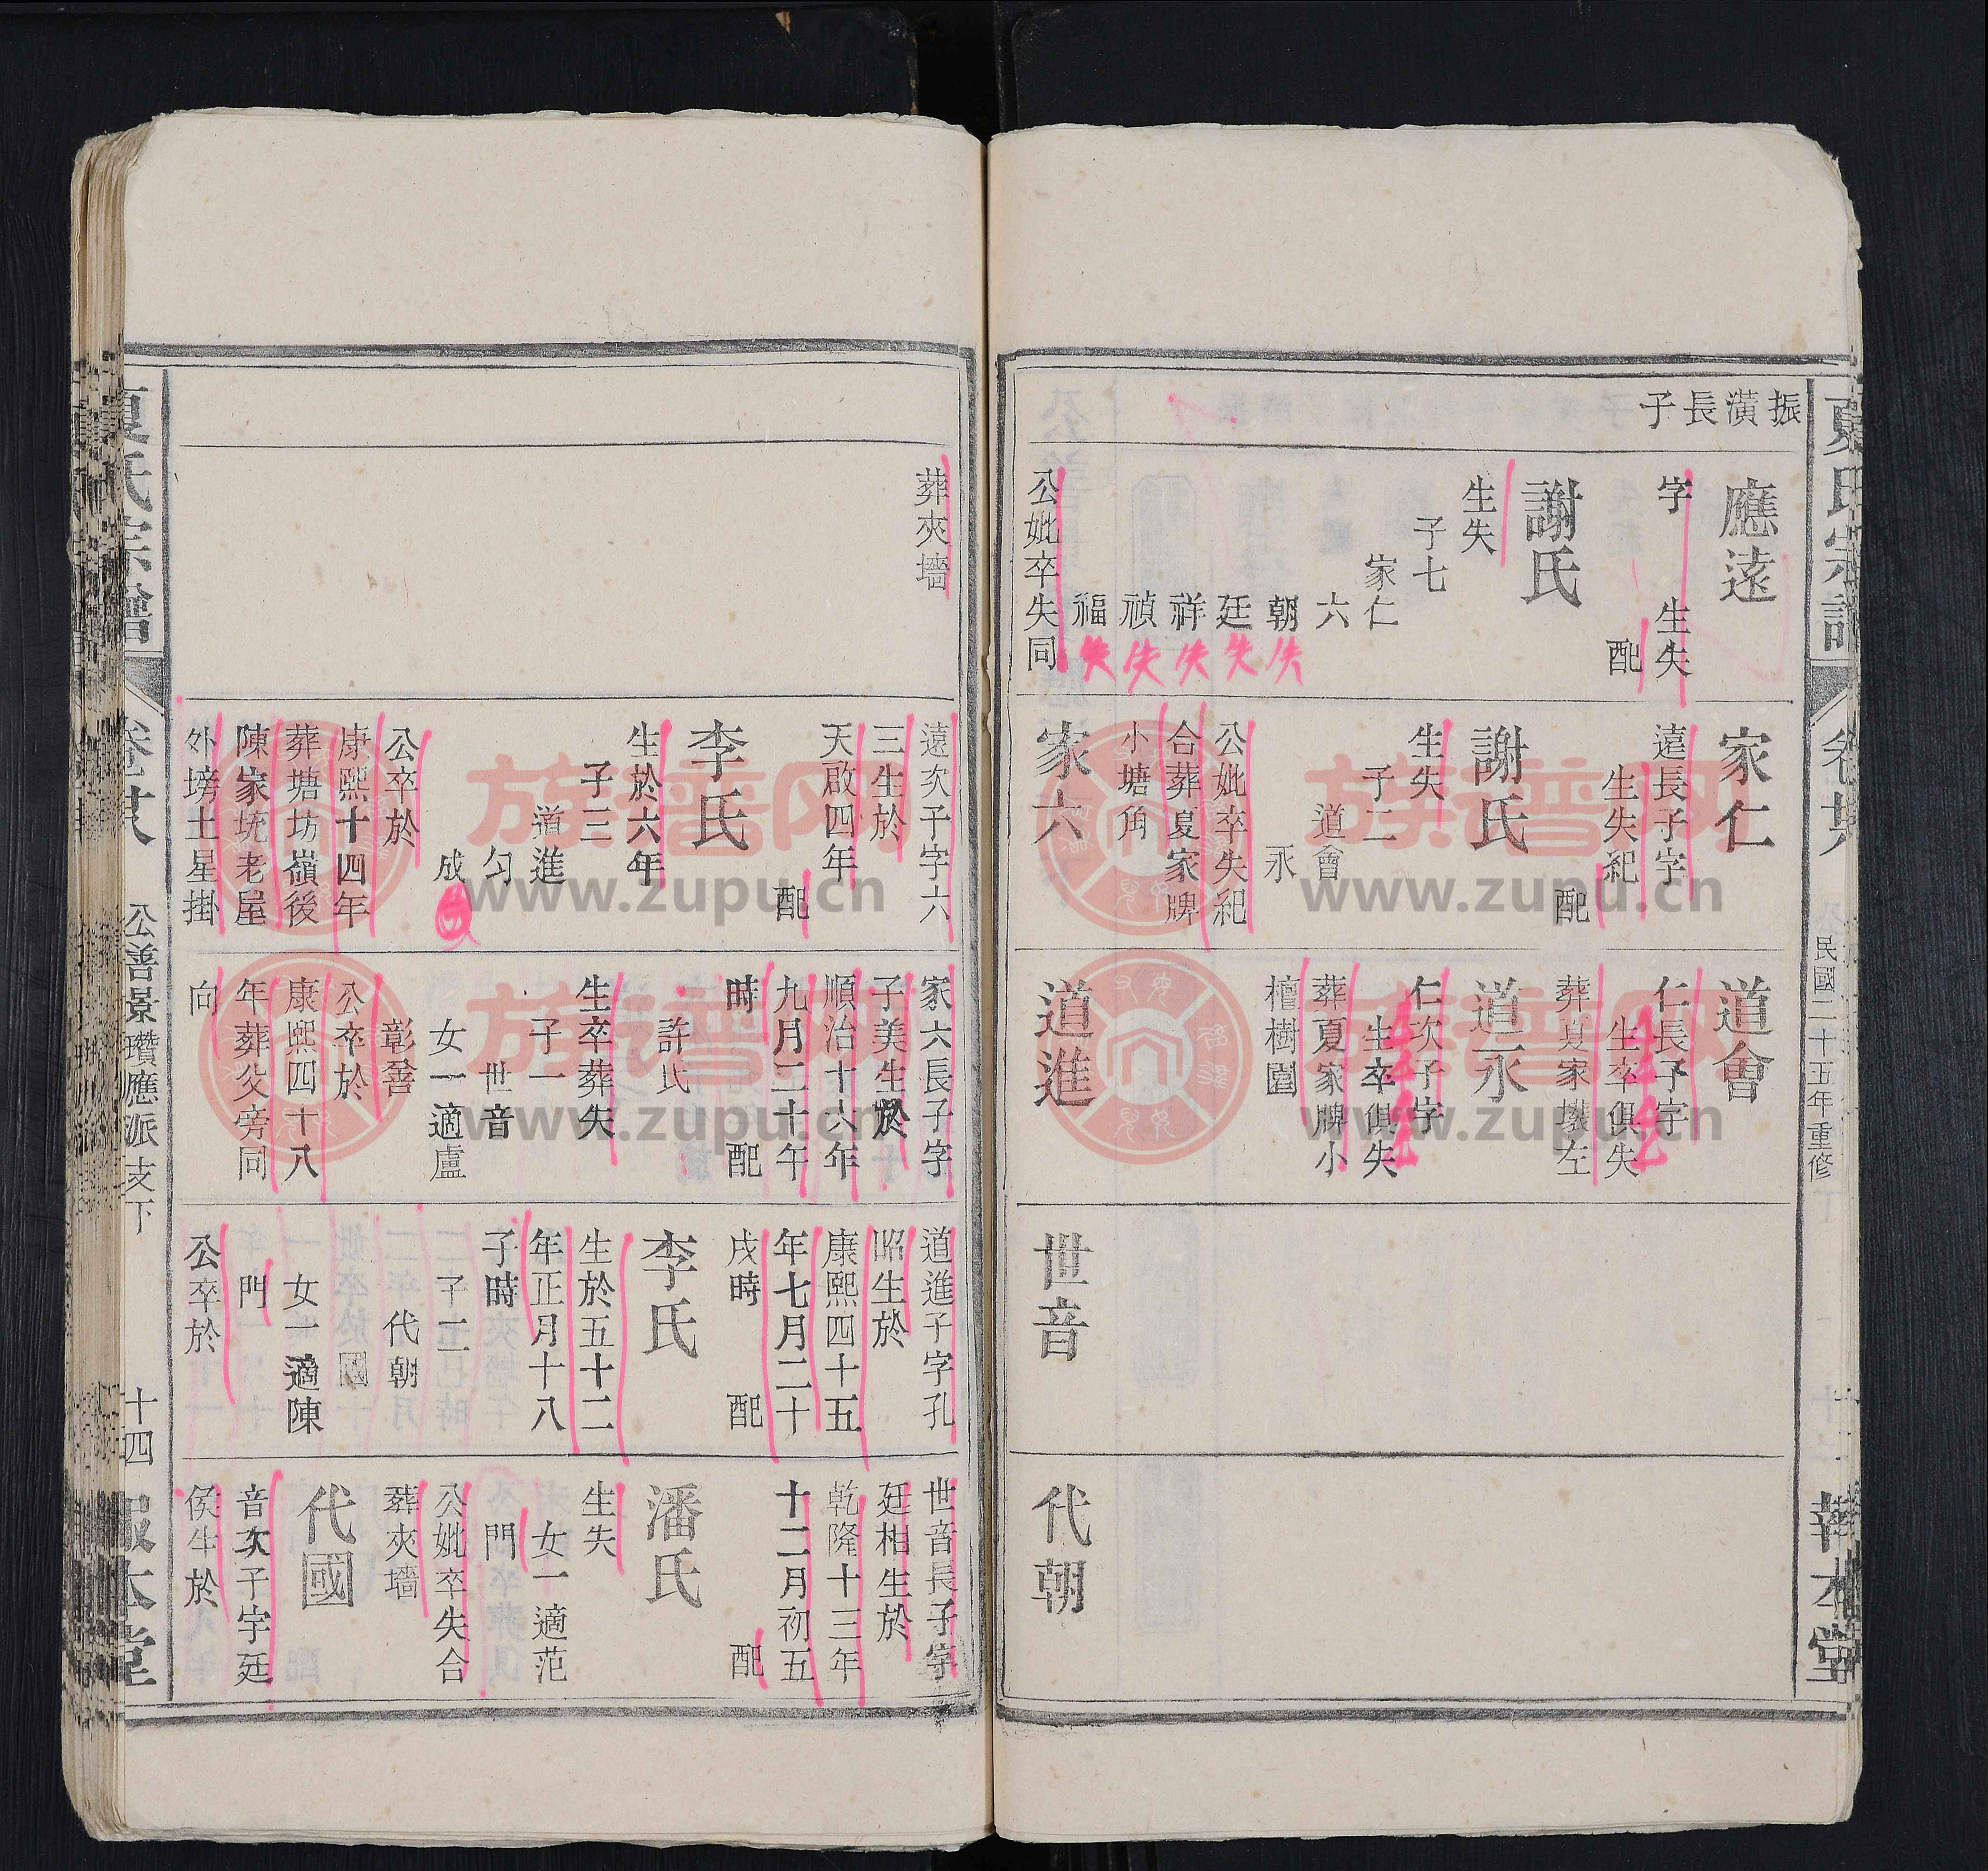 夏氏宗譜
民國二十五年重修
報本堂
振潢長子
應遠
字 生失
配
謝氏
生失
子七
家仁
六
朝 失
廷 失
祥 失
禎 失
福 失
公妣卒失同
葬夾墻
家仁
遠長子字
生失紀
配
謝氏
生失
子二
道會
永
公妣卒失紀
合葬夏家牌
小塘角
家六
遠次子字六
三生於
天啟四年
配
李氏
生於六年
子三
道進
勻
成
公卒於
康熙十四年
葬塘坊嶺後
陳家坑老屋
外塝土星掛
道會
仁長子字
生卒俱失
葬夏家壋左
道永
仁次子字
生卒俱失
葬夏家牌小
檀樹園
道進
家六長子字
子美生於
順治十六年
九月二十午
時
配
許氏
生卒葬失
子一
世音
女一適盧
彰善
公卒於
康熙四十八
年葬父旁同
向
世音
道進子字孔
昭生於
康熙四十五
年七月二十
戌時
配
李氏
生於五十二
年正月十八
子時
子二
代朝
國
女一適陳
門
公卒於
代朝
世音長子字
廷相生於
乾隆十三年
十二月初五
配
潘氏
生失
女一適范
門
公妣卒失合
葬夾墻
代國
音次子字廷
侯生於
夏氏宗譜
公善景瓚應派支下
十四
報本堂
族谱网
www.zupu.cn
族谱网
www.zupu.cn
族谱网
www.zupu.cn
族谱网
www.zupu.cn